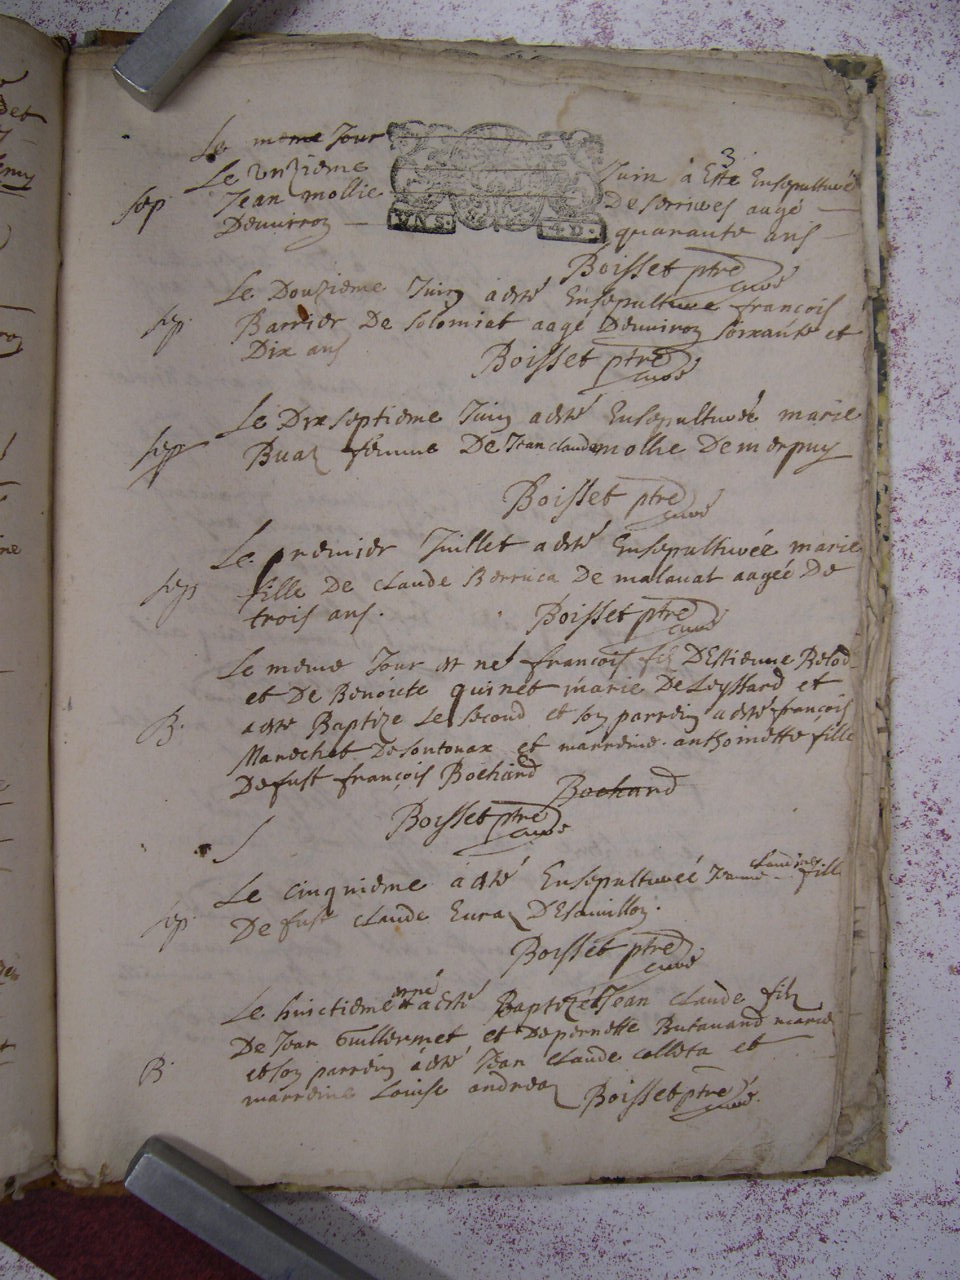 3
Le meme Jour
Le unzieme Juin à Esté Ensepulturé
sep. Jean mollie De serrieres aagé
Denviron quarante ans
VN S. 4 D.
Boisset ptre curé
Le Douzieme Juin a esté Ensepulturé françois
sep. Barrier De solomiat aagé Denviron soixante et
Dix ans Boisset ptre curé
Le Dixseptieme Juin a esté Ensepulturée marie
sep Buaz femme De Jean claude mollie De merpuy
Boisset ptre curé
Le premier Juillet a esté Ensepulturée marie
sep fille De claude Berruca De malavat aagée De
trois ans. Boisset ptre curé
Le meme Jour est né françois fils D'Estienne Belod
et De Benoicte quinet mariés De Leyssard et
B. a esté Baptize Le second et son parrein a esté françois
Marechet De sontonax et marreine anthoinette fille
De fust françois Bochard Bochard
Boisset ptre curé
Le cinquieme a esté Ensepulturée Jeanne claudine fille
sep. De fust claude Euraz D'Esuilloz.
Boisset ptre curé
Le huictieme est né a esté Baptizé Jean claude fils
De Jean Guillermet et De pernette Butavand mariés
B. et son parrein a esté Jean claude colleta et
marreine Louise andreaz Boisset ptre curé